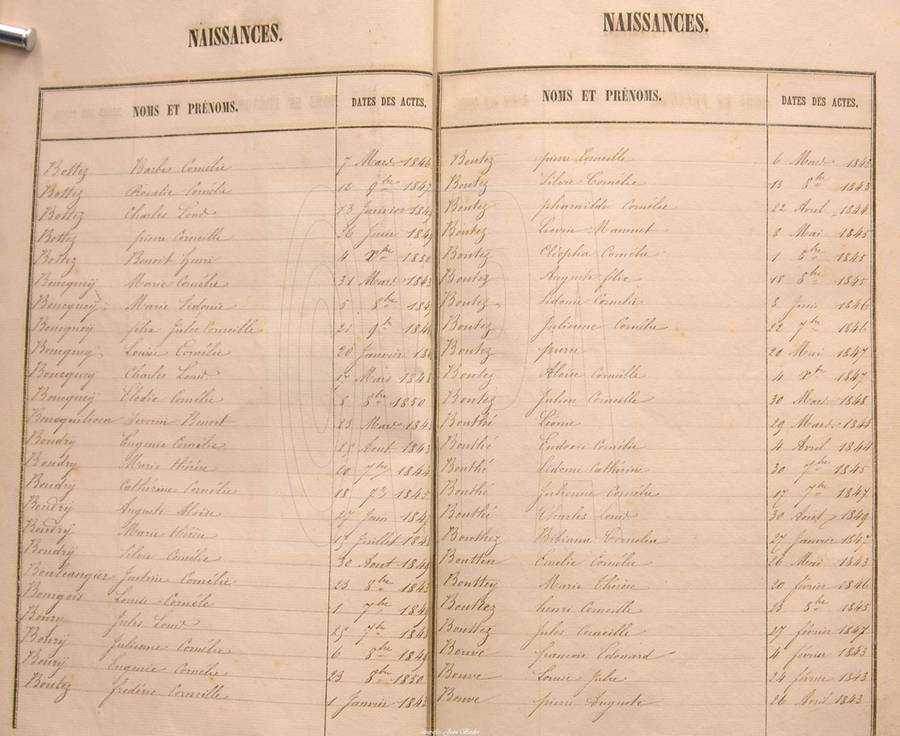 NAISSANCES.
NOMS ET PRÉNOMS. DATES DES ACTES.
Bottez Barbe Cornélie 7 Mars 1846
Bottez Rosalie Cornélie 12 9bre
Bottez Charles Louis 13 Janvier
Bottez pierre Corneille 26 Juin
Bottez Benoit henri 4 Xbre 1850
Bouquey Marie Cornélie 31 Mars 1843
Bouquey Marie Sidonie 5 8bre
Bouquey félix Jules Corneille 21 9bre
Bouquey Louise Cornélie 20 Janvier
Bouquey Charles Louis 17 Mars 1848
Bouquey Elodie Cornélie 5 8bre 1850
Séverin Benoit 23 Mars
Boudry Eugénie Cornélie 25 Aout 1843
Boudry Marie thérèse 20 7bre 1844
Boudry Cathérine Cornélie 18 7bre 1845
Boudry Auguste Aloise 27 Juin
Boudry Marie thérèse 17 Juillet
Boudry Silvie Cornélie 30 Aout
Boulangier Justine Cornélie 23 8bre
Bourgois Louise Cornélie 1 7bre
Boury Jules Louis 25 7bre
Boury Julienne Cornélie 6 8bre
Boury Eugénie Cornélie 23 8bre 1850
Boutez frédéric Corneille 1 Janvier 1843
NAISSANCES.
NOMS ET PRÉNOMS. DATES DES ACTES.
Boutez pierre Corneille 6 Mars 1843
Boutez Silvie Cornélie 13 8bre 1843
Boutez pharaïlde Cornélie 22 Avril 1844
Boutez Liévin Mammet 8 Mai 1845
Boutez Cléopha Cornélie 1 8bre 1845
Boutez Auguste félix 18 8bre 1845
Boutez Sidonie Cornélie 8 Juin 1846
Boutez Julienne Cornélie 22 7bre 1846
Boutez pierre 20 Mai 1847
Boutez Aloise Corneille 4 Xbre 1847
Boutez Julien Corneille 30 Mars 1848
Bouthé Léonie 29 Mars 1844
Bouthé Eudoxie Cornélie 4 Avril 1844
Bouthé Sidonie Cathérine 30 7bre 1845
Bouthé Julienne Cornélie 17 7bre 1847
Bouthé Charles Louis 30 Aout 1849
Bibiana Cornelia 27 Janvier 1847
Bouttin Emélie Cornélie 26 Mai 1843
Bouttez Marie thérèse 20 février 1846
Bouttez henri Corneille 23 8bre 1845
Bouttez Jules Corneille 27 février 1847
Bouve françois Edouard 4 février 1843
Bouve Louise Julie 24 février 1843
Bouve pierre Auguste 26 Avril 1843